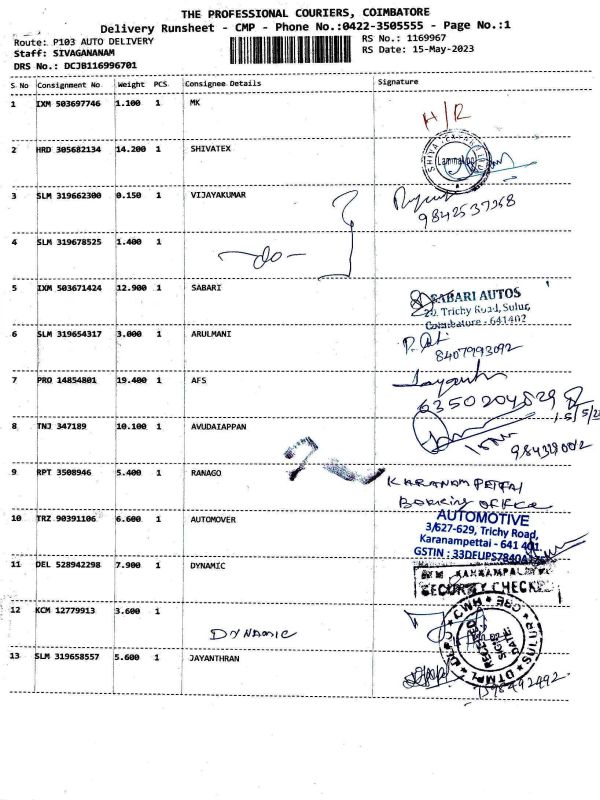 THE PROFESSIONAL COURIERS, COIMBATORE
Delivery Runsheet - CMP - Phone No.:0422-3505555 - Page No.:1
Route: P103 AUTO DELIVERY RS No.: 1169967
Staff: SIVAGANANAM RS Date: 15-May-2023
DRS No.: DCJB116996701
S No Consignment No Weight PCS Consignee Details Signature
1 IXM 503697746 1.100 1 MK
H/R
2 HRD 305682134 14.200 1 SHIVATEX
3 SLM 319662300 0.150 1 VIJAYAKUMAR
4 SLM 319678525 1.400 1
-do-
5 IXM 503671424 12.900 1 SABARI
SABARI AUTOS
20, Trichy Road, Sulur,
Coimbatore - 641402
6 SLM 319654317 3.000 1 ARULMANI
8407993092
7 PRO 14854801 19.400 1 AFS
6350204829
8 TNJ 347189 10.100 1 AVUDAIAPPAN
9 RPT 3508946 5.400 1 RANAGO
KARANAM PETTAI
BOOKING OFFICE
10 TRZ 90391106 6.600 1 AUTOMOVER
AUTOMOTIVE
3/627-629, Trichy Road,
Karanampettai - 641 401.
GSTIN : 33DEUPS7840A
11 DEL 528942298 7.900 1 DYNAMIC
SECURITY CHECKED
12 KCM 12779913 3.600 1
DYNAMIC
13 SLM 319658557 5.600 1 JAYANTHRAN